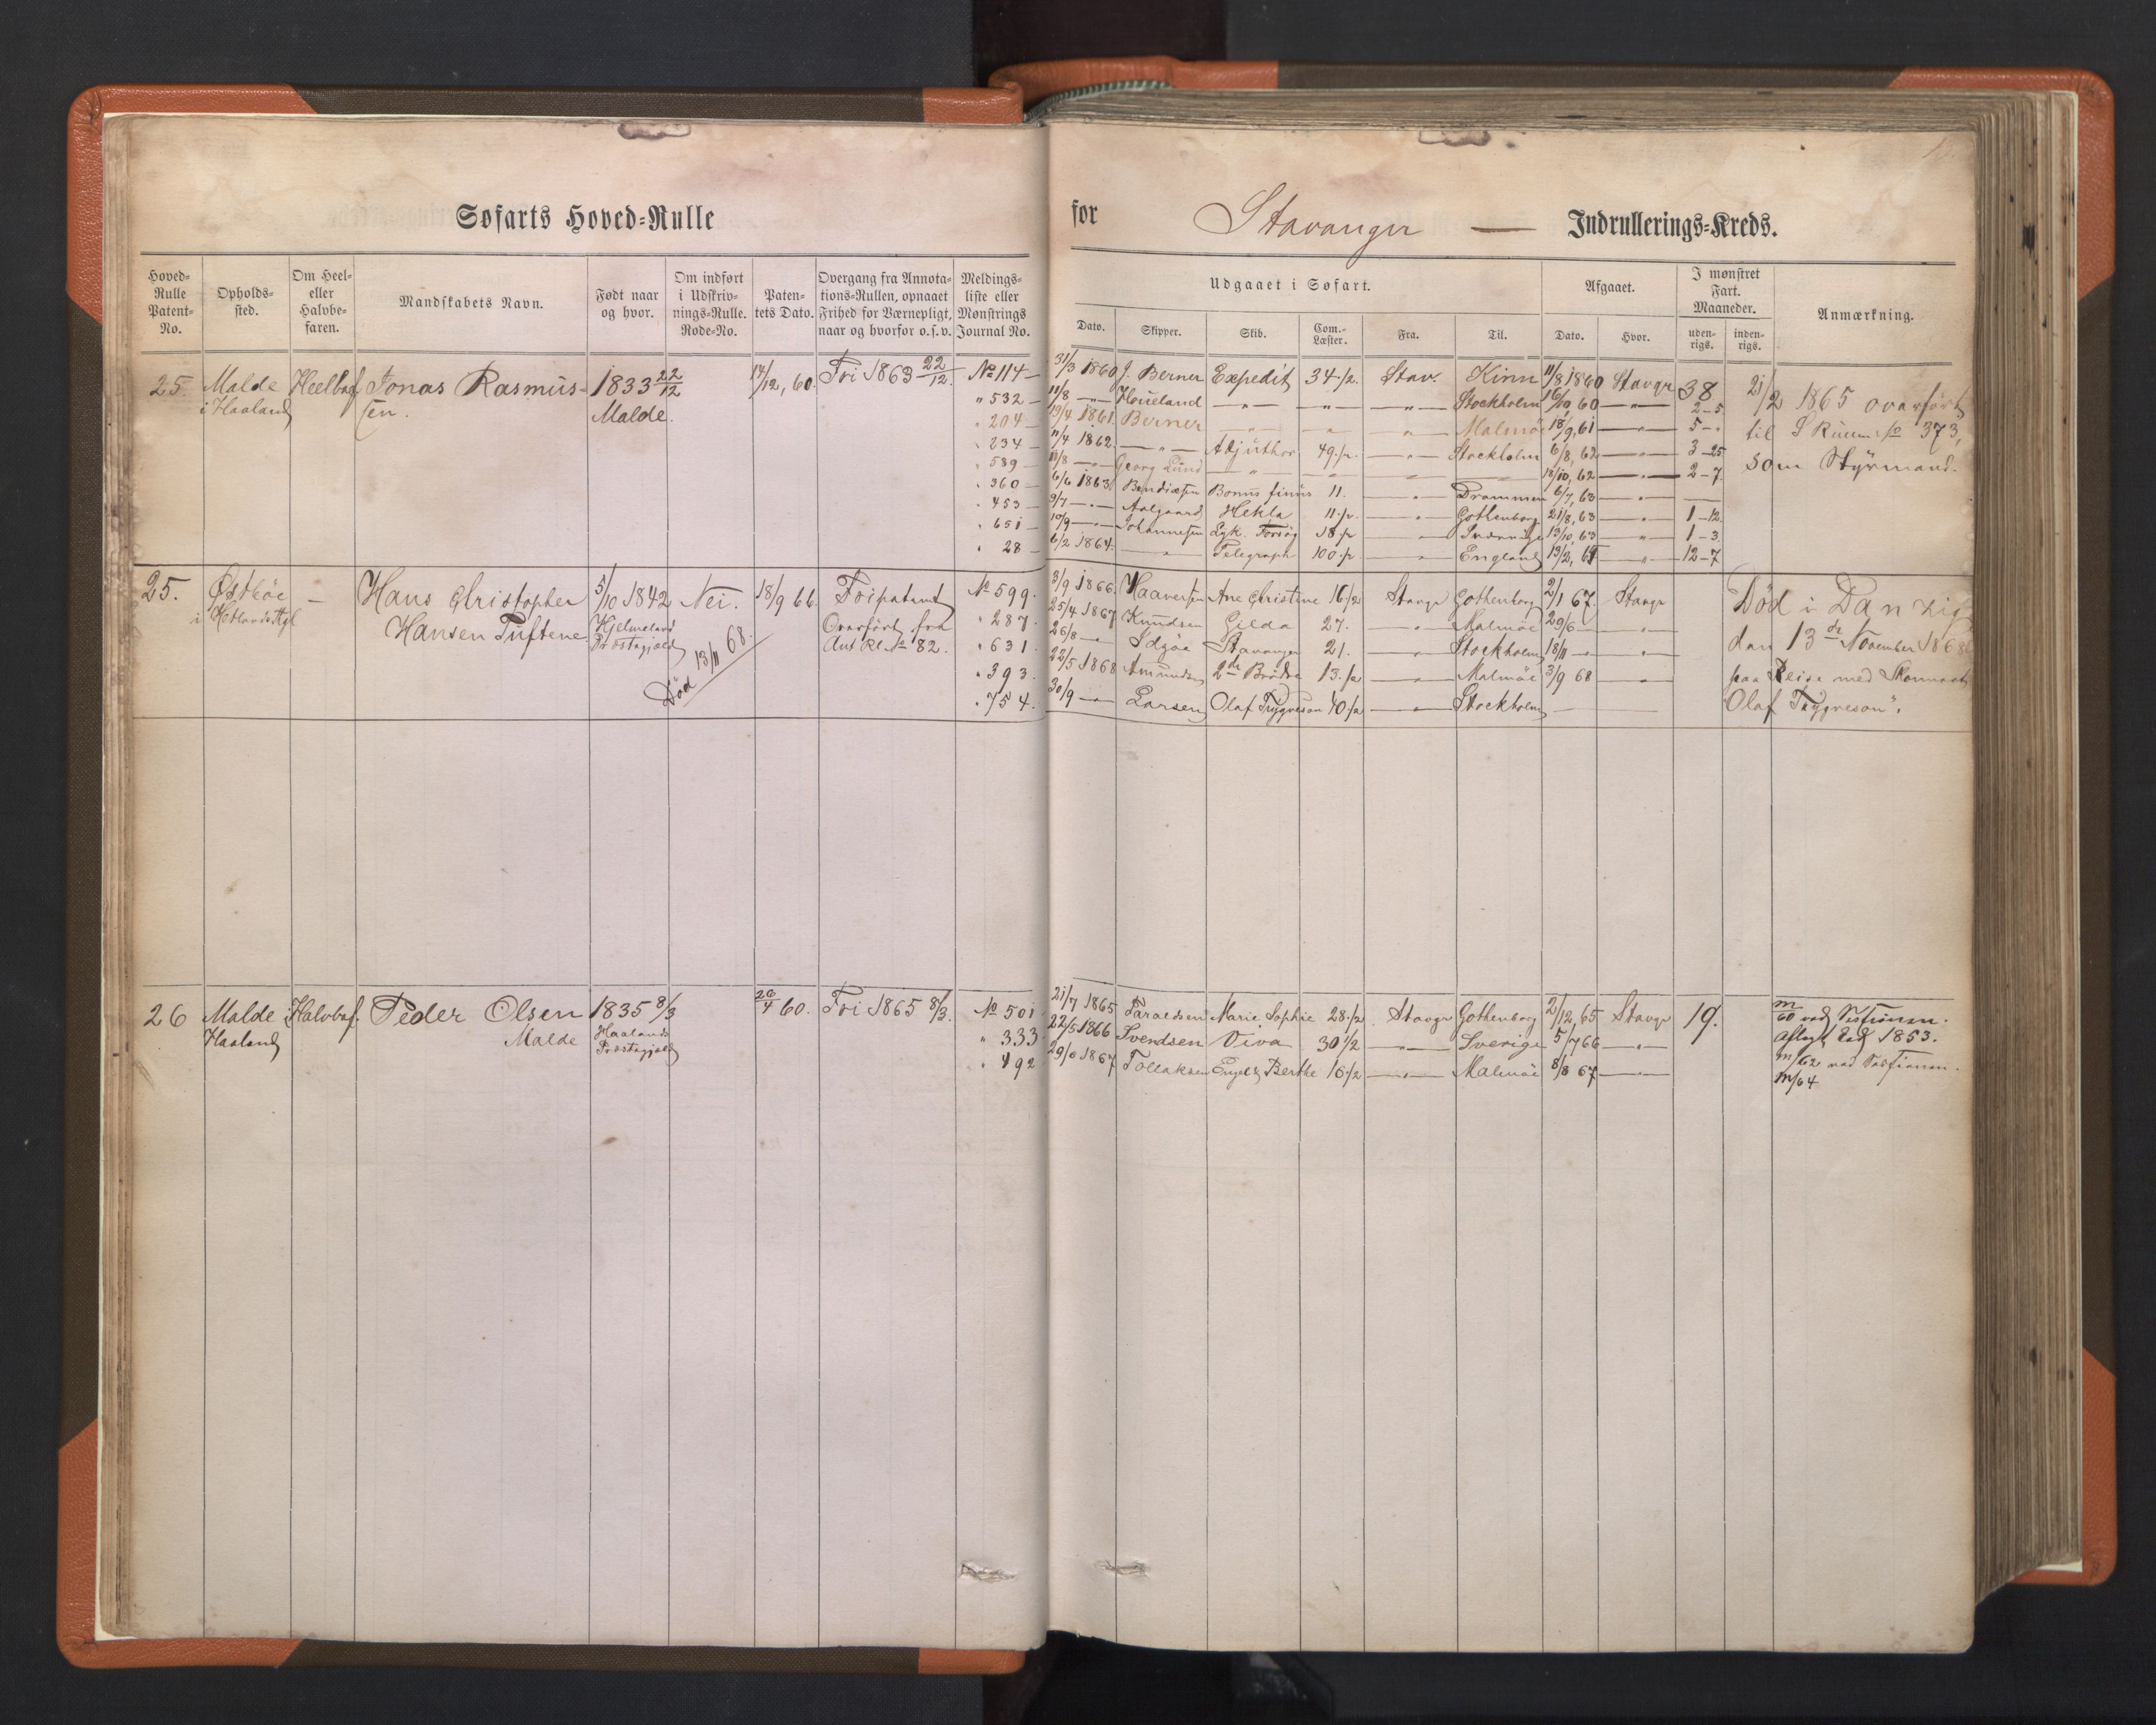 Søfarts Hoved-Rulle for Stavanger — Indrullerings-Kreds.
Hoved-Rulle Patent-No.
Opholds-sted.
Om Heel- eller Halvbe-faren.
Mandskabets Navn.
Født naar og hvor.
Om indført i Udskriv-nings-Rulle. Rode-No.
Paten-tets Dato.
Overgang fra Annota-tions-Rullen, opnaaet Frihed for Værnepligt, naar og hvorfor o.s.v.
Meldings-liste eller Mønstrings Journal No.
Udgaaet i Søfart.
Dato. Skipper. Skib. Com.-Læster. Fra. Til.
Afgaaet.
Dato. Hvor.
I mønstret Fart. Maaneder.
uden-rigs. inden-rigs.
Anmærkning.
25. Malde Heelbef. Jonas Rasmus- 1833 22/12 14/12, 60. Fri 1863 22/12. No 114 — 31/3 1860 J. Berner Expedit 34 1/2. Stav. Kinn 11/8 1860 Stavgr 38 21/2 1865 overført
i Haaland sen. Malde. " 532 — 11/8 — " — Houeland — " — — " — — " — Stockholm 16/10 60 — " — 2-5
" 204 — 13/4 1861. Berner — " — " " Malmöe 18/9, 61 — " — 5 - " til Rullen No 373,
" 234 — 11/4 1862. — " — Adjuthor 49 1/2. — " — Stockholm 6/8, 62 — " — 3-25
" 589 — 11/8 — " — Georg Lund — " — 18/10, 62 — " — 2-7 som Styrmand.
" 360 — 6/6 1863. Bendixsen Bonus finis 11. — " — Drammen 6/7, 63 — " — —
" 453 — 9/7 — " — Aalgaard Hekla 11 1/2. — " — Gothenborg 21/8, 63 — " — 1-12.
" 651 — 10/9 — " — Johannesen Lyk. Forsøg 18 1/2 — " — 13/10, 63 — " — 1-3.
" 28 — 6/2 1864. — " — Telegraph 100 1/2 — " — England 13/2, 65 — " — 12-7
25. Østbøe — Hans Christopher 5/10 1842 Nei. 18/9 66. Fripatent No 599. 3/9 1866. Haaversen Ane Christine 16 1/2 Stavgr Gothenborg 2/1 67. Stavgr Død i Danzig
i Hetlands Hansen Tuftene Hjelmeland Præstegjeld Overført fra " 287. 25/4 1867 Knudsen Gilda 27. — " — Malmöe 29/6 — — " — den 13de November 1868
Død 13/11 68. Ant Rl No 82. " 631. 26/8 — " — Idsøe Stavanger 21. — " — Stockholm 18/11 — — " —
" 393. 22/5 1868 Amundsen 2de Brødre 13 1/2 — " — Malmöe 3/9 68 — " — paa Reise med Skonnert
" 754. 30/9 — " — Larsen Olaf Trygveson 40 1/2 — " — Stockholm — — Olaf Trygveson".
26 Malde Halvbef. Peder Olsen 1835 8/3 26/4 60. Fri 1865 8/3. No 501 21/7 1865 Taraldsen Marie Sophie 28 1/2 Stavgr Gothenborg 2/12, 65 Stavgr 19.
Haaland Malde Haalands Præstegjeld " 333 22/5 1866 Svendsen Viva 30 1/2 — " — Sverige 5/7 66 — " — 1853.
" 492 1867 Tollaksen Engel Berthe 16 1/2 — " — Malmöe 8/8 67 — " — m/62
m/64